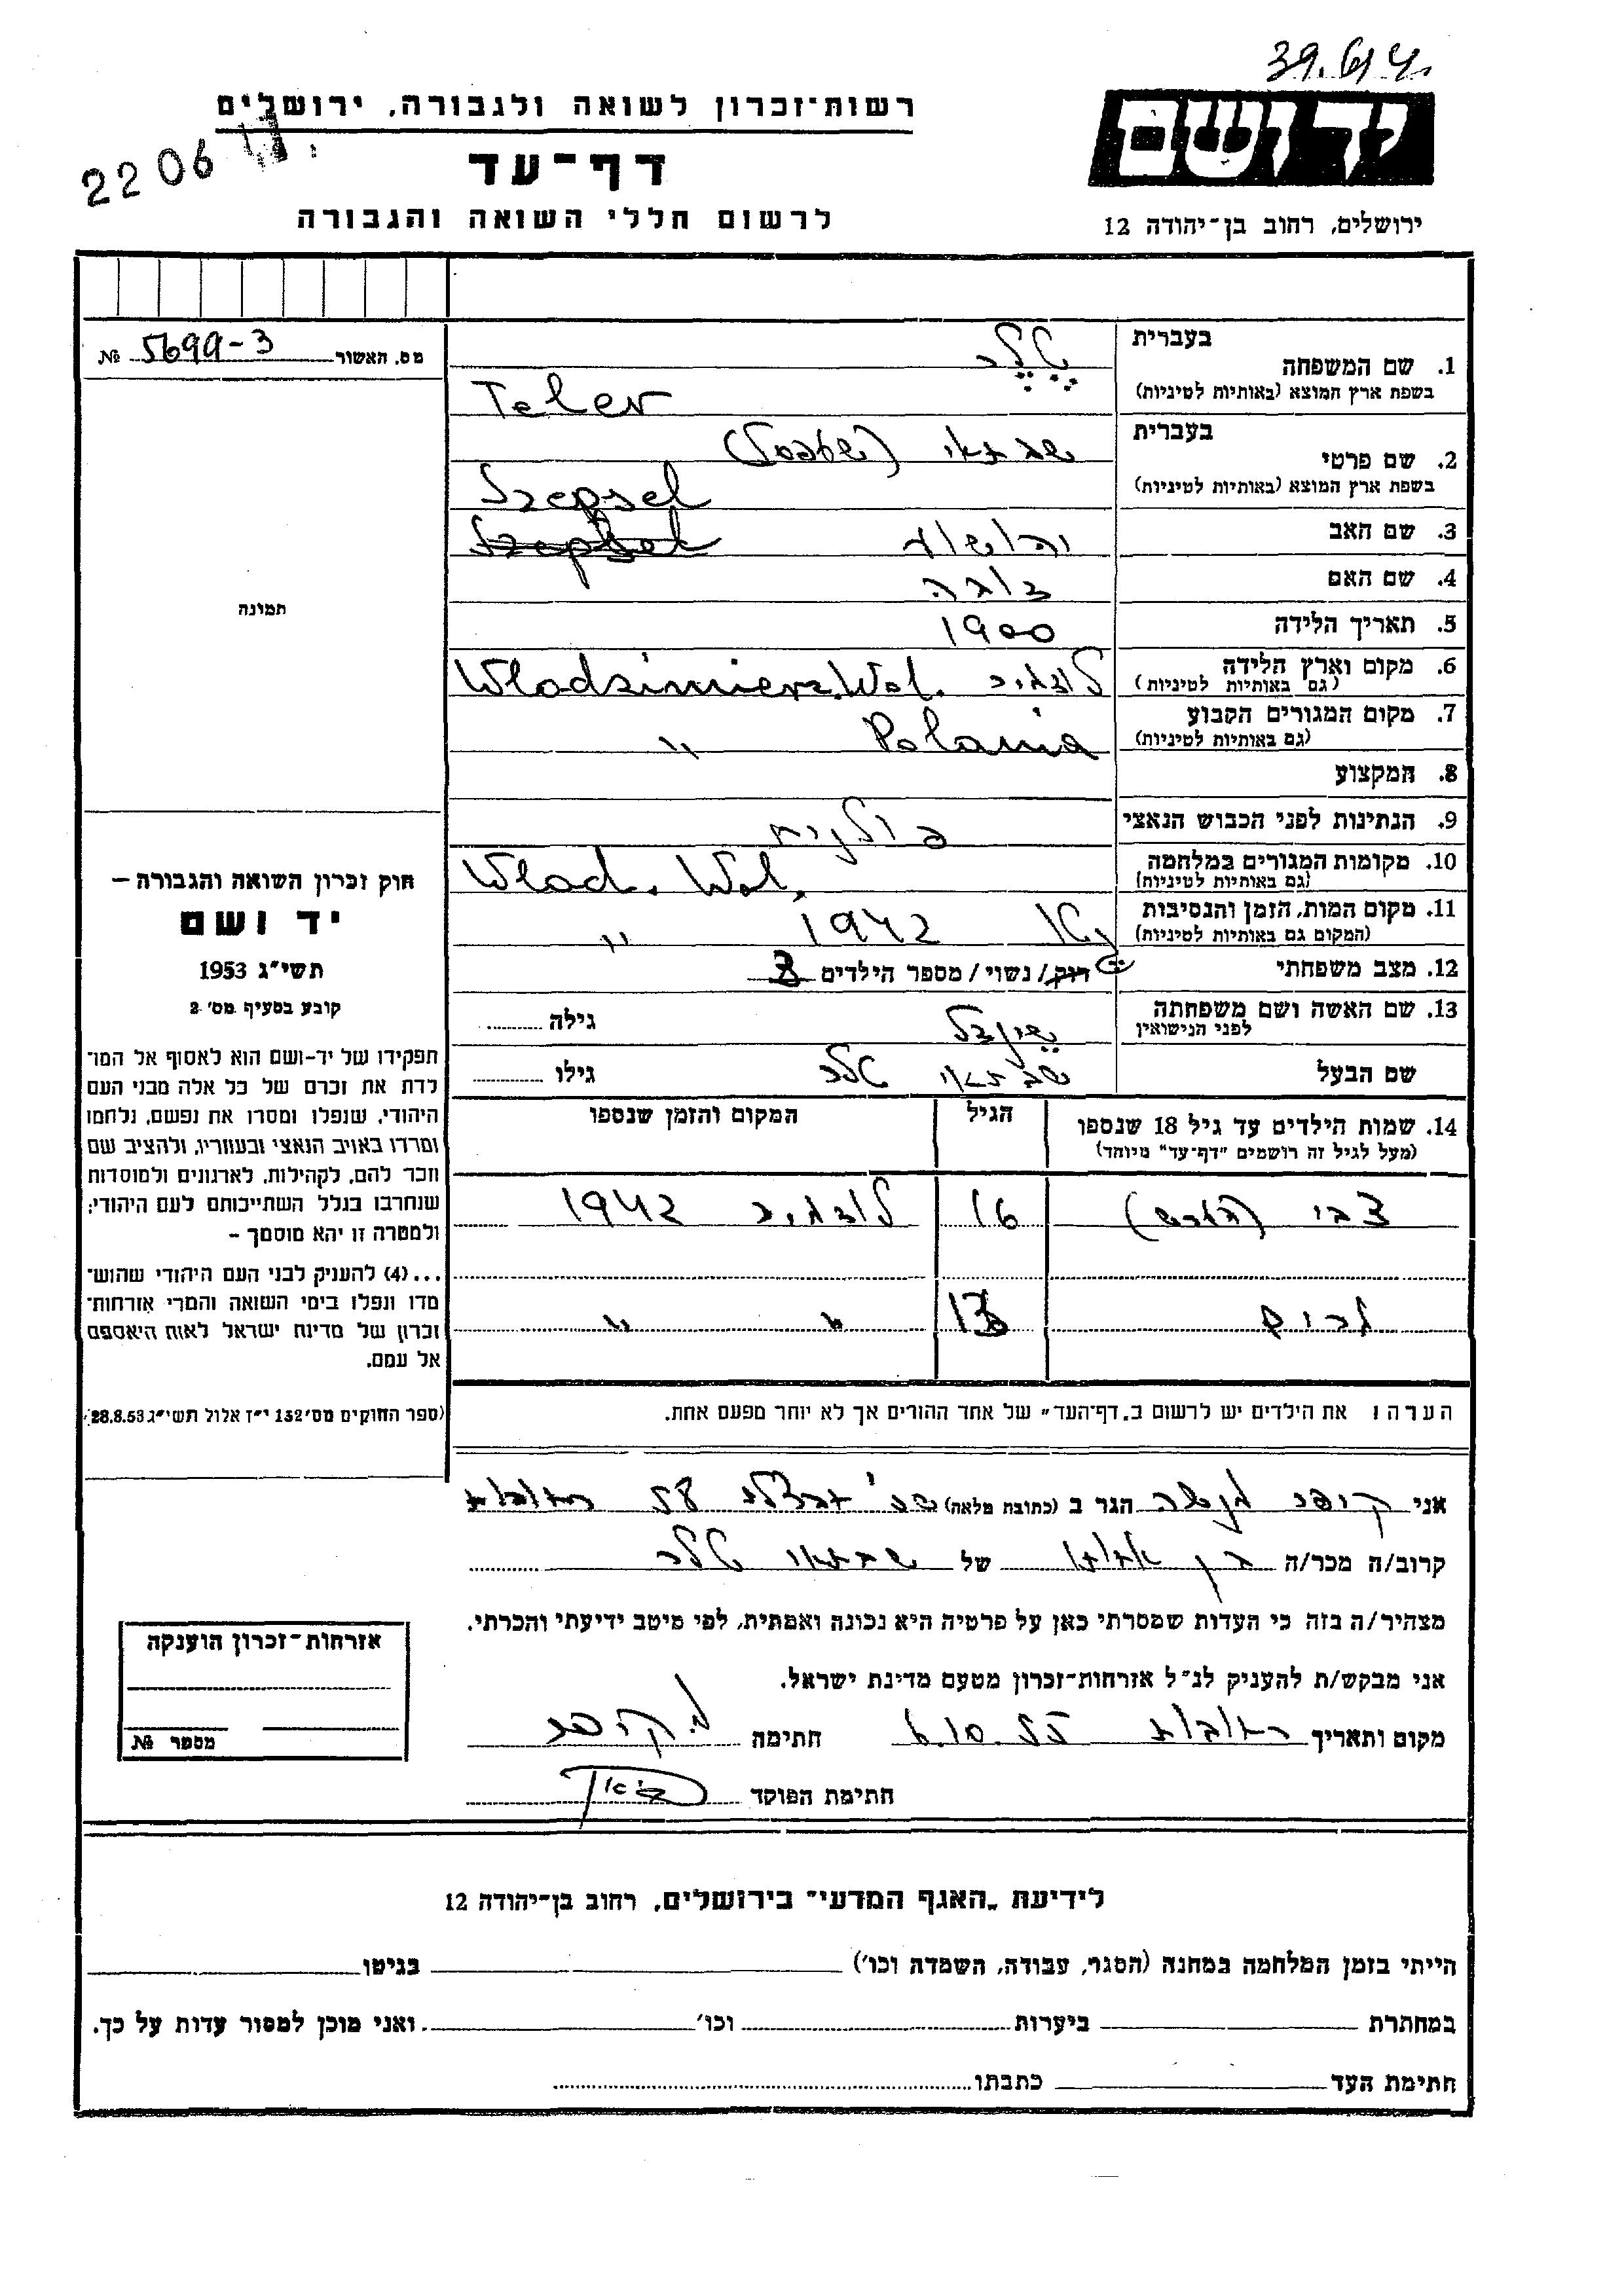 39.614
יד ושם
ירושלים, רחוב בן־יהודה 12
רשות־זכרון לשואה ולגבורה, ירושלים
2206
דף־עד
לרשום חללי השואה והגבורה
מס. האשור 5699-3 №
תמונה
חוק זכרון השואה והגבורה —
יד ושם
תשי״ג 1953
קובע בסעיף מס׳ 2
תפקידו של יד-ושם הוא לאסוף אל המו־
לדת את זכרם של כל אלה מבני העם
היהודי, שנפלו ומסרו את נפשם, נלחמו
ומרדו באויב הנאצי ובעוזריו, ולהציב שם
וזכר להם, לקהילות, לארגונים ולמוסדות
שנחרבו בגלל השתייכותם לעם היהודי;
ולמטרה זו יהא מוסמך –
...(4) להעניק לבני העם היהודי שהוש־
מדו ונפלו בימי השואה והמרי אזרחות־
זכרון של מדינת ישראל לאות היאספם
אל עמם.
(ספר החוקים מס׳ 132 י״ז אלול תשי״ג 28.8.53)
בעברית טלר
1. שם המשפחה
בשפת ארץ המוצא (באותיות לטיניות) Teler
בעברית שבתאי (שעפסל)
2. שם פרטי
בשפת ארץ המוצא (באותיות לטיניות) Szepsel
3. שם האב יהושע Szepsel
4. שם האם
5. תאריך הלידה 1900
6. מקום וארץ הלידה לודמיר Wlodzimierz.Wol.
(גם באותיות לטיניות)
7. מקום המגורים הקבוע Polania "
(גם באותיות לטיניות)
8. המקצוע
9. הנתינות לפני הכבוש הנאצי פולנית
10. מקומות המגורים במלחמה Wlad. Wol.
(גם באותיות לטיניות)
11. מקום המות, הזמן והנסיבות 1942 "
(המקום גם באותיות לטיניות)
12. מצב משפחתי רוק / נשוי / מספר הילדים
13. שם האשה ושם משפחתה שיינדל גילה
לפני הנישואין
שם הבעל שבתאי טלר גילו
14. שמות הילדים עד גיל 18 שנספו הגיל המקום והזמן שנספו
(מעל לגיל זה רושמים "דף־עד" מיוחד)
צבי (הערש) 16 לודמיר 1942
חיים 13 " "
הערה: את הילדים יש לרשום ב„דף־העד״ של אחד ההורים אך לא יותר מפעם אחת.
אני קופר הגר ב (כתובת מלאה) רח׳ הרצל 58 רחובות
קרוב/ה מכר/ה בן של שבתאי טלר
מצהיר/ה בזה כי העדות שמסרתי כאן על פרטיה היא נכונה ואמתית, לפי מיטב ידיעתי והכרתי.
אני מבקש/ת להעניק לנ״ל אזרחות־זכרון מטעם מדינת ישראל.
מקום ותאריך רחובות חתימה
חתימת הפוקד
אזרחות־זכרון הוענקה
מספר №
לידיעת „האגף המדעי״ בירושלים, רחוב בן־יהודה 12
הייתי בזמן המלחמה במחנה (הסגר, עבודה, השמדה וכו׳) בגיטו
במחתרת ביערות וכו׳ ואני מוכן למסור עדות על כך.
חתימת העד כתבתו